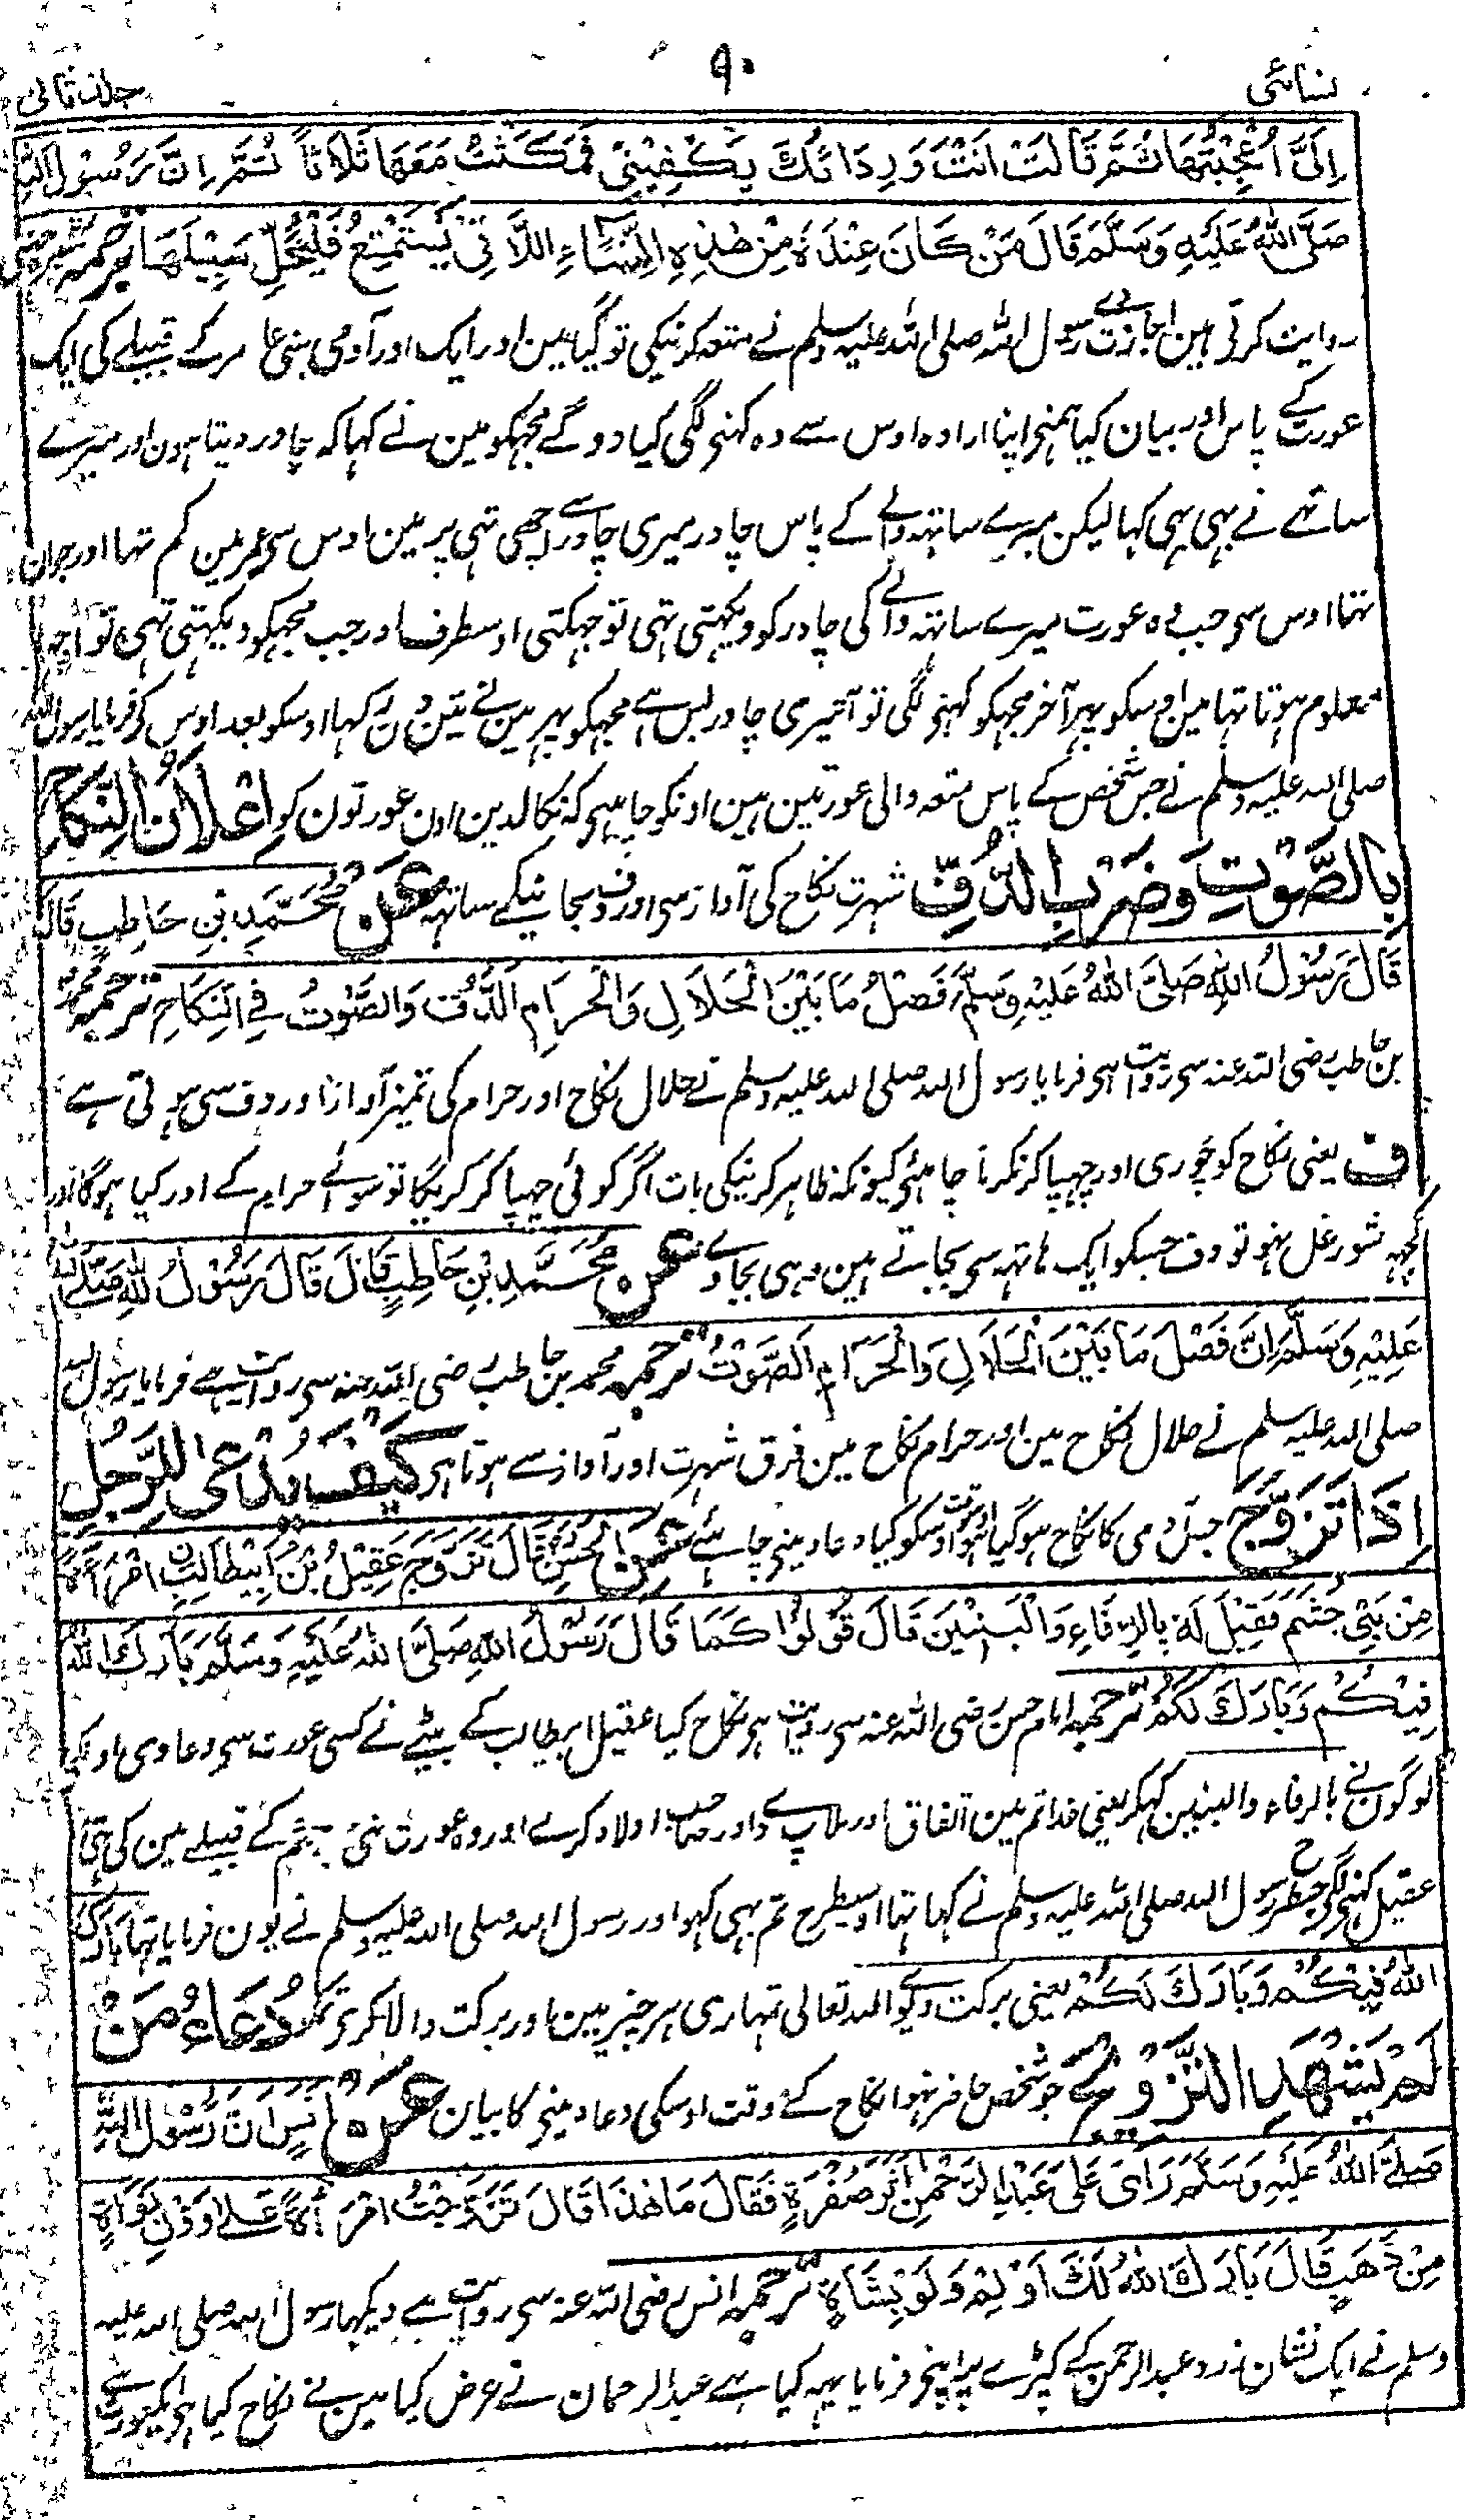 نسائی ۹۰ جلد ثانی
اِلَیَّ اُعْجِبْتُهَا ثُمَّ قَالَتْ اَنْتَ وَرِدَائُكَ يَكْفِيْنِيْ فَمَكَثْتُ مَعَهَا ثَلَاثًا ثُمَّ اِنَّ رَسُوْلَ اللهِ
صَلَّى اللهُ عَلَيْهِ وَسَلَّمَ قَالَ مَنْ كَانَ عِنْدَهٗ مِنْ هٰذِهِ النِّسَاءِ اللَّاتِيْ يَسْتَمْتِعُ فَلْيُخَلِّ سَبِيْلَهَا ترجمہ
روایت کرتی ہین اجازت دی رسول اللہ صلی اللہ علیہ وسلم نے متعہ کرنیکی تو گیا مین اور ایک اور آدمی بنی عامر کے قبیلے کی ایک
عورت کے پاس اور بیان کیا ہمنی اپنا ارادہ اوس سے وہ کہنی لگی کیا دو گے مجہکو مین نے کہا کہ چادر دیتا ہون اور میرے
ساتھی نے بہی یہی کہا لیکن میرے ساتہہ والے کے پاس چادر میری چادر سے اچھی تہی پر مین اوس سی عمر مین کم تہا اور جوان
تہا اوس سی جب وہ عورت میرے ساتہہ والے کی چادر کو دیکہتی تہی تو جہکتی اوسطرف اور جب مجہکو دیکہتی تہی تو اچہا
معلوم ہوتا تہا مین اوسکو پہر آخر مجہکو کہنی لگی تو آ تیری چادر بس ہے مجہکو پہر مین نے تین دن کہا اوسکو بعد اوس کی فرمایا رسول اللہ
صلی اللہ علیہ وسلم نے جس شخص کے پاس متعہ والی عورتین ہین اونکو چاہیی کہ نکالدین اون عورتون کو اِعْلَانُ النِّكَاحِ
بِالصَّوْتِ وَضَرْبِ الدُّفِّ شہرت نکاح کی آواز سی اور دف بجانیکے ساتہہ عَنْ مُحَمَّدِ بْنِ حَاطِبٍ قَالَ
قَالَ رَسُوْلُ اللهِ صَلَّى اللهُ عَلَيْهِ وَسَلَّمَ فَصْلُ مَا بَيْنَ الْحَلَالِ وَالْحَرَامِ اَلدُّفُّ وَالصَّوْتُ فِي النِّكَاحِ ترجمہ محمد
بن حاطب رضی اللہ عنہ سی روایت ہی فرمایا رسول اللہ صلی اللہ علیہ وسلم نے حلال نکاح اور حرام کی تمیز آواز اور دف سی ہوتی ہے
ف یعنی نکاح کو چوری اور چہپا کر نکرنا چاہئی کیونکہ ظاہر کرنیکی بات اگر کوئی چہپا کر کریگا تو سوائے حرام کے اور کیا ہوگا اور
کچہہ شور غل نہو تو دف جسکو ایک ہاتہہ سی بجاتے ہین وہی بجاوے عَنْ مُحَمَّدِ بْنِ حَاطِبٍ قَالَ قَالَ رَسُوْلُ اللهِ صَلَّى اللهُ
عَلَيْهِ وَسَلَّمَ اِنَّ فَصْلَ مَا بَيْنَ الْحَلَالِ وَالْحَرَامِ اَلصَّوْتُ ترجمہ محمد بن حاطب رضی اللہ عنہ سی روایت ہے فرمایا رسول اللہ
صلی اللہ علیہ وسلم نے حلال نکاح مین اور حرام نکاح مین فرق شہرت اور آواز سے ہوتا ہی كَيْفَ يُدْعٰى لِلرَّجُلِ
اِذَا تَزَوَّجَ جس آدمی کا نکاح ہو گیا ہو تو اوسکو کیا دعا دینی چاہئے عَنِ الْحَسَنِ قَالَ تَزَوَّجَ عَقِيْلُ بْنُ اَبِيْطَالِبٍ امْرَأَةً
مِنْ بَنِيْ جُشَمَ فَقِيْلَ لَهٗ بِالرِّفَاءِ وَالْبَنِيْنَ قَالَ قُوْلُوْا كَمَا قَالَ رَسُوْلُ اللهِ صَلَّى اللهُ عَلَيْهِ وَسَلَّمَ بَارَكَ اللهُ
فِيْكُمْ وَبَارَكَ لَكُمْ ترجمہ امام حسن رضی اللہ عنہ سی روایت ہی نکاح کیا عقیل ابیطالب کے بیٹے نے کسی عورت سی دعا دی اونکی
لوگون نے بالرفاء والبنین کہکر یعنی خدا تم مین اتفاق اور ملاپ دے اور صاحب اولاد کرے اور وہ عورت بنی جشم کے قبیلے مین کی تہی
عقیل کہنی لگی جسطرح رسول اللہ صلی اللہ علیہ وسلم نے کہا تہا اوسیطرح تم بہی کہو اور رسول اللہ صلی اللہ علیہ وسلم نے یون فرمایا تہا بَارَكَ
اللهُ فِيْكُمْ وَبَارَكَ لَكُمْ یعنی برکت دیوے اللہ تعالی تمہاری ہر چیز مین اور برکت والا کری تمکو دُعَاءُ مَنْ
لَمْ يَشْهَدِ التَّزْوِيْجَ جو شخص حاضر نہوا نکاح کے وقت اوسکی دعا دینی کا بیان عَنْ اَنَسٍ اَنَّ رَسُوْلَ اللهِ
صَلَّى اللهُ عَلَيْهِ وَسَلَّمَ رَاٰى عَلٰى عَبْدِ الرَّحْمٰنِ اَثَرَ صُفْرَةٍ فَقَالَ مَا هٰذَا قَالَ تَزَوَّجْتُ امْرَأَةً عَلٰى وَزْنِ نَوَاةٍ
مِنْ ذَهَبٍ قَالَ بَارَكَ اللهُ لَكَ اَوْلِمْ وَلَوْ بِشَاةٍ ترجمہ انس رضی اللہ عنہ سی روایت ہے دیکہا رسول اللہ صلی اللہ علیہ
وسلم نے ایک نشان زرد عبد الرحمن کے کپڑے پر اپنی فرمایا یہہ کیا ہے عبد الرحمان نے عرض کیا مین نے نکاح کیا ہی ایک عورت سے